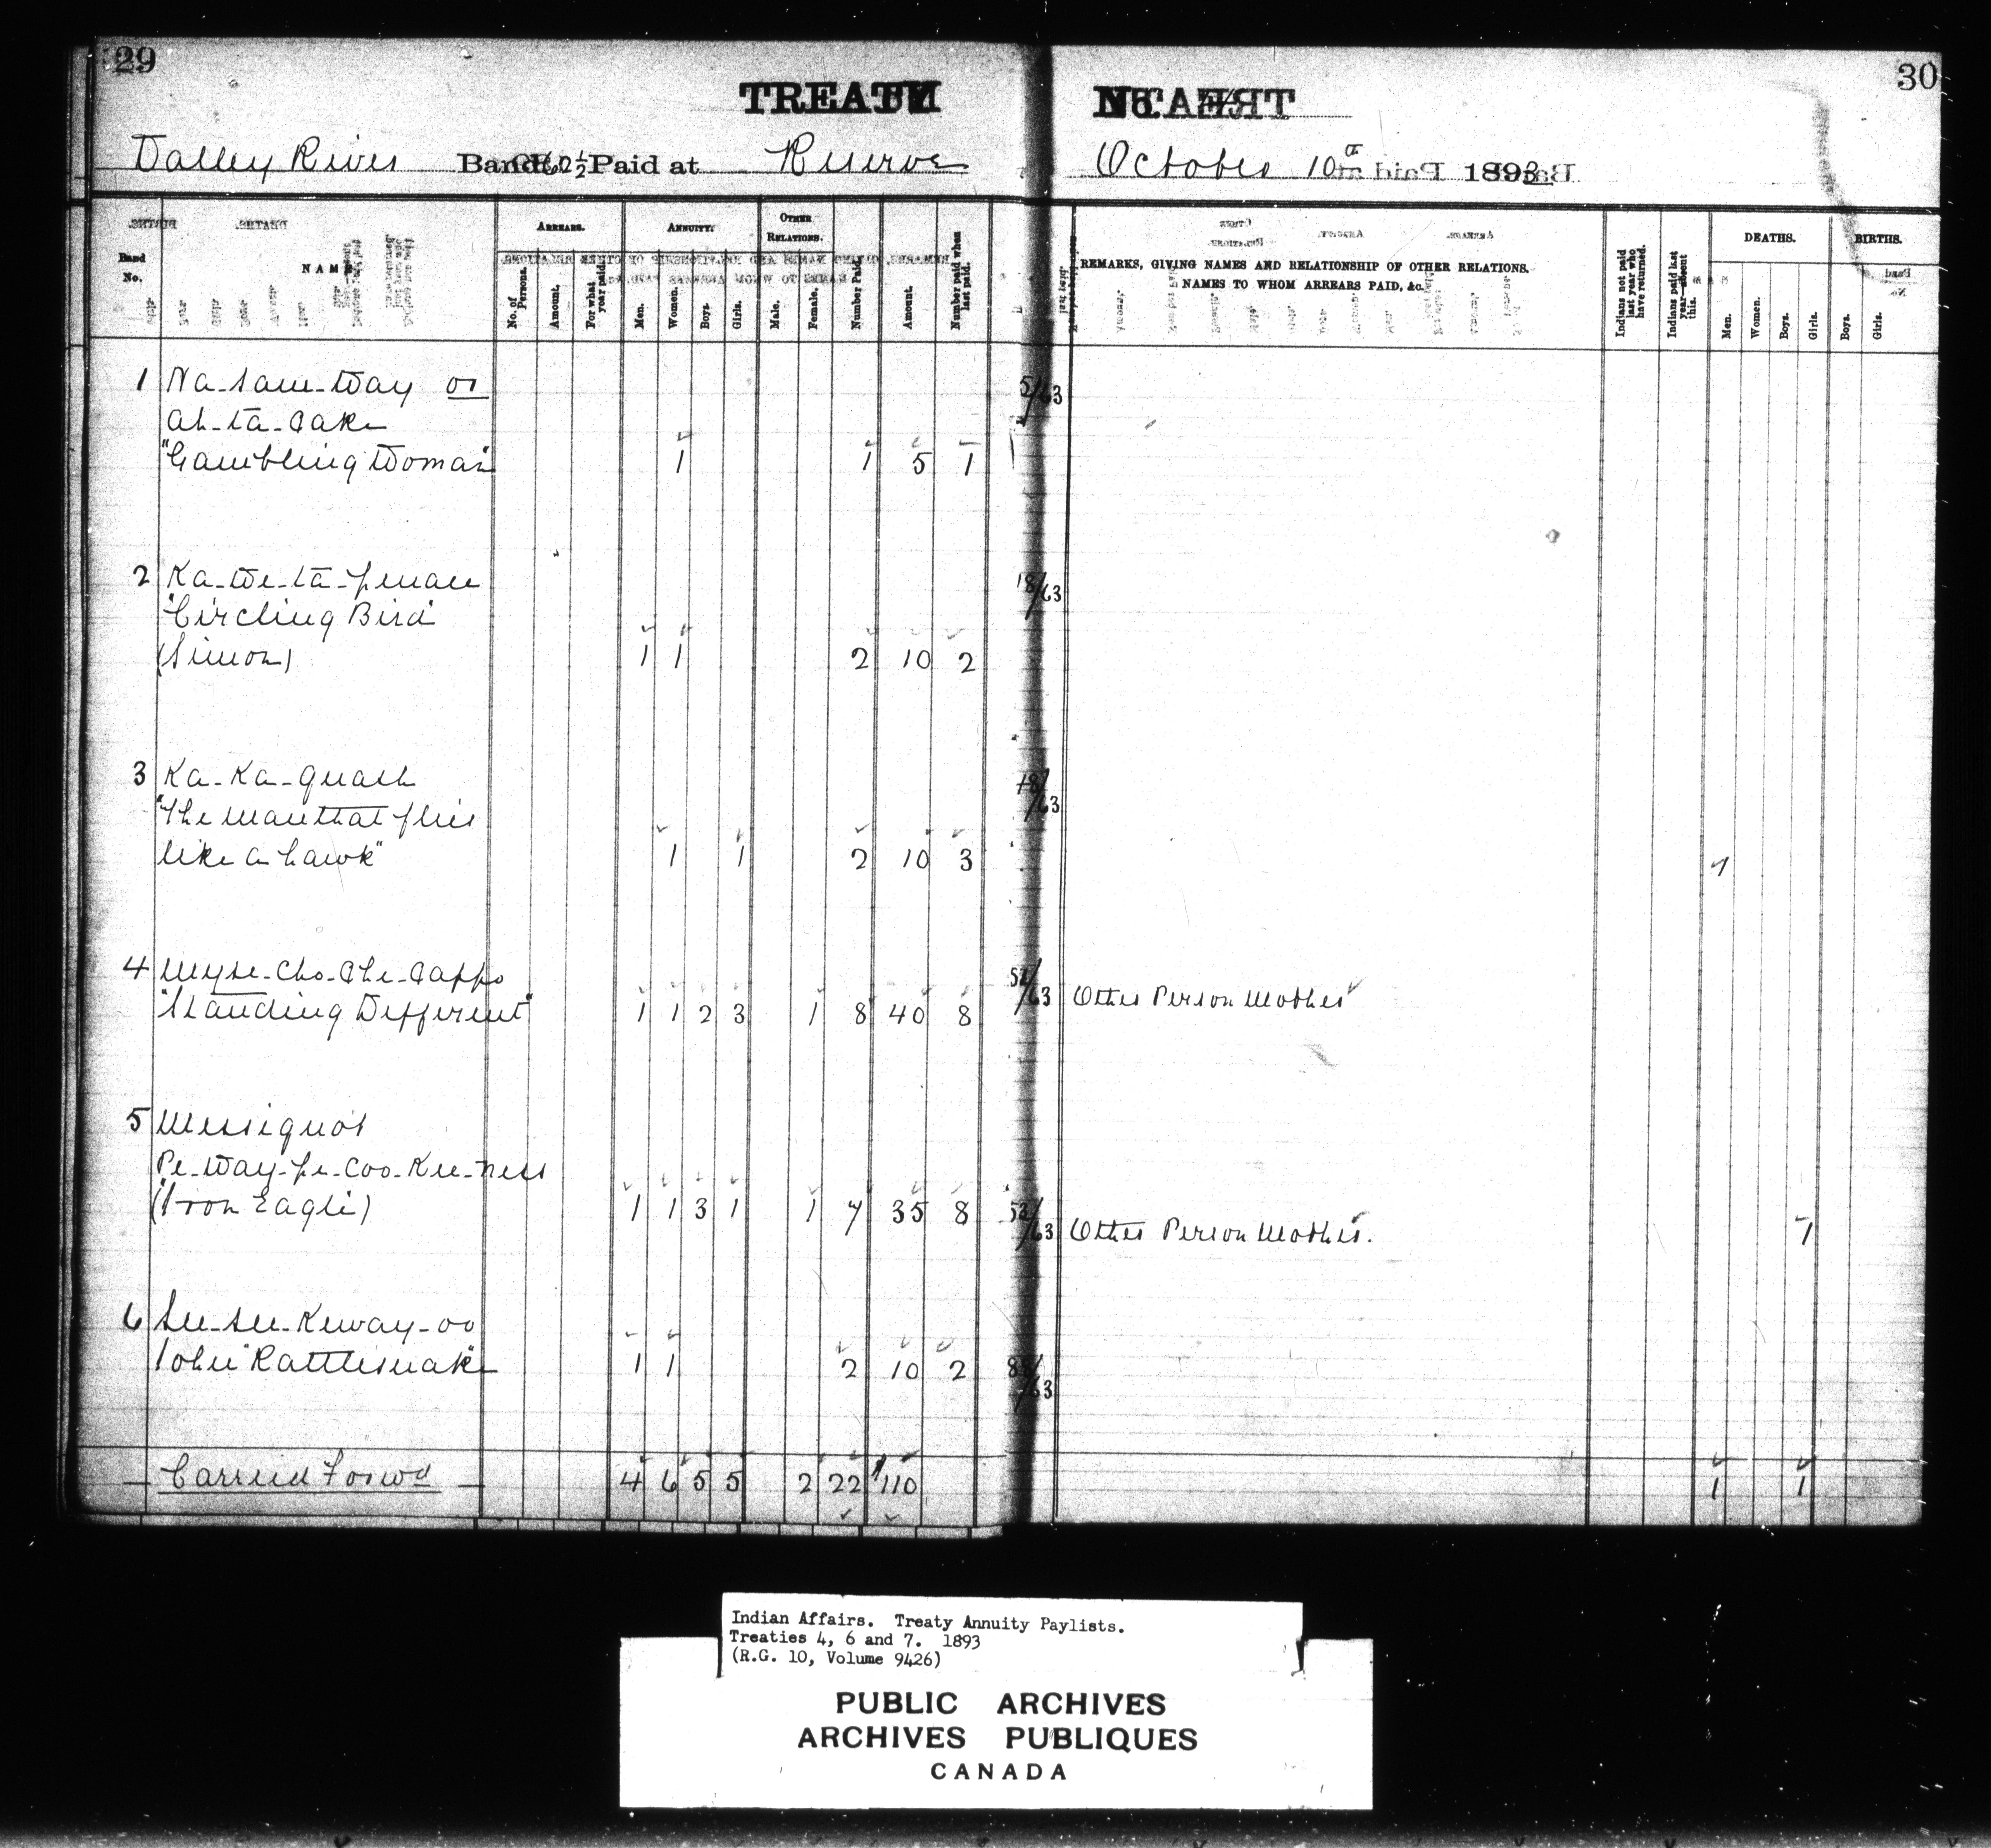 29
TREATY
Valley River Band 62½ Paid at Reserve
Band No.
NAME
ARREARS.
No. of Persons.
Amount.
For what year paid.
ANNUITY.
Men.
Women.
Boys.
Girls.
OTHER RELATIONS.
Male.
Female.
Number Paid.
Amount.
Number paid when last paid.
1 Na-saw-way or 5/63
Ah-ta-cake
"Gambling Woman" 1 1 5 1
2 Ka-we-ta-penace 18/63
"Circling Bird"
(Simon) 1 1 2 10 2
3 Ka-Ka-quash
"The man that flies
like a hawk" 1 1 2 10 3
4
"Standing Different" 1 1 2 3 1 8 40 8
5 Messiquot
Pe-way-pe-coo-Kee-ness
(Iron Eagle) 1 1 3 1 1 7 35 8
6 See-see-Keway-oo
John "Rattlesnake" 1 1 2 10 2
Carried Forwd 4 6 5 5 2 22 110
30
No.
October 10th 1893
REMARKS, GIVING NAMES AND RELATIONSHIP OF OTHER RELATIONS.
NAMES TO WHOM ARREARS PAID, &c.
Indians not paid last year who have returned.
Indians paid last year—absent this.
DEATHS.
Men.
Women.
Boys.
Girls.
BIRTHS.
Boys.
Girls.
1
Other Person Mother
Other Person Mother. 1
1 1
Indian Affairs. Treaty Annuity Paylists.
Treaties 4, 6 and 7. 1893
(R.G. 10, Volume 9426)
PUBLIC ARCHIVES
ARCHIVES PUBLIQUES
CANADA